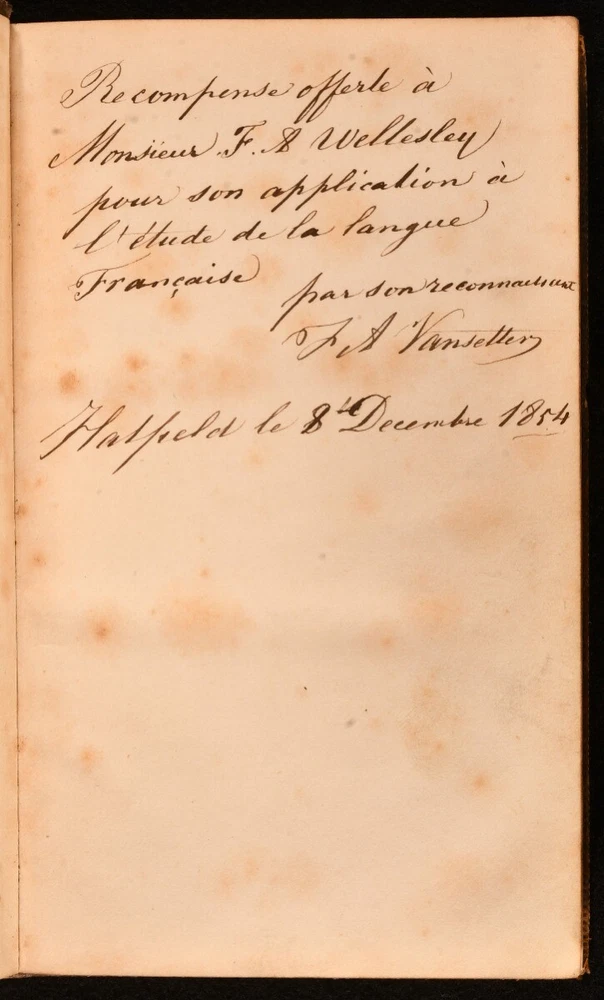 Recompense offerte à
Monsieur F. A Wellesley
pour son application à
l'étude de la langue
Française
par son reconnaissant
F A Vansetter
Hatfield le 8te Decembre 1854